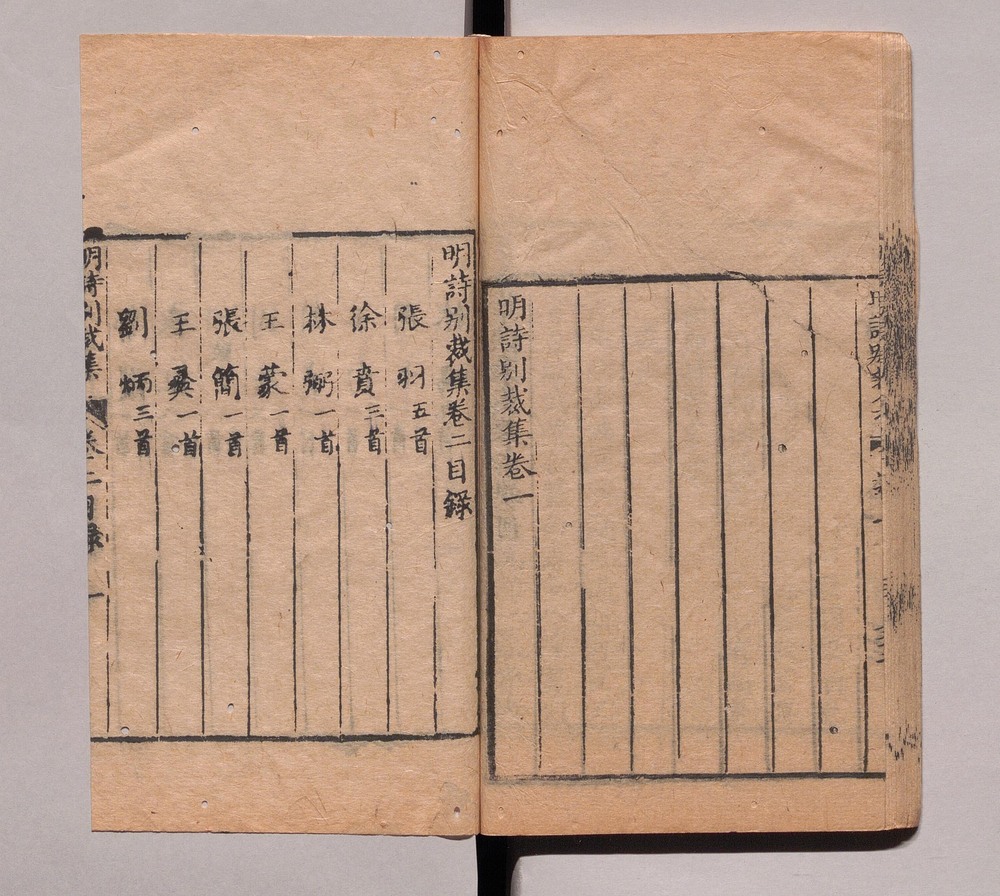 明詩別裁集卷一
明詩别裁集卷二目錄
張羽五首
徐賁三首
林弼一首
王蒙一首
張簡一首
王彝一首
劉炳三首
明詩別裁集 卷二目録 一